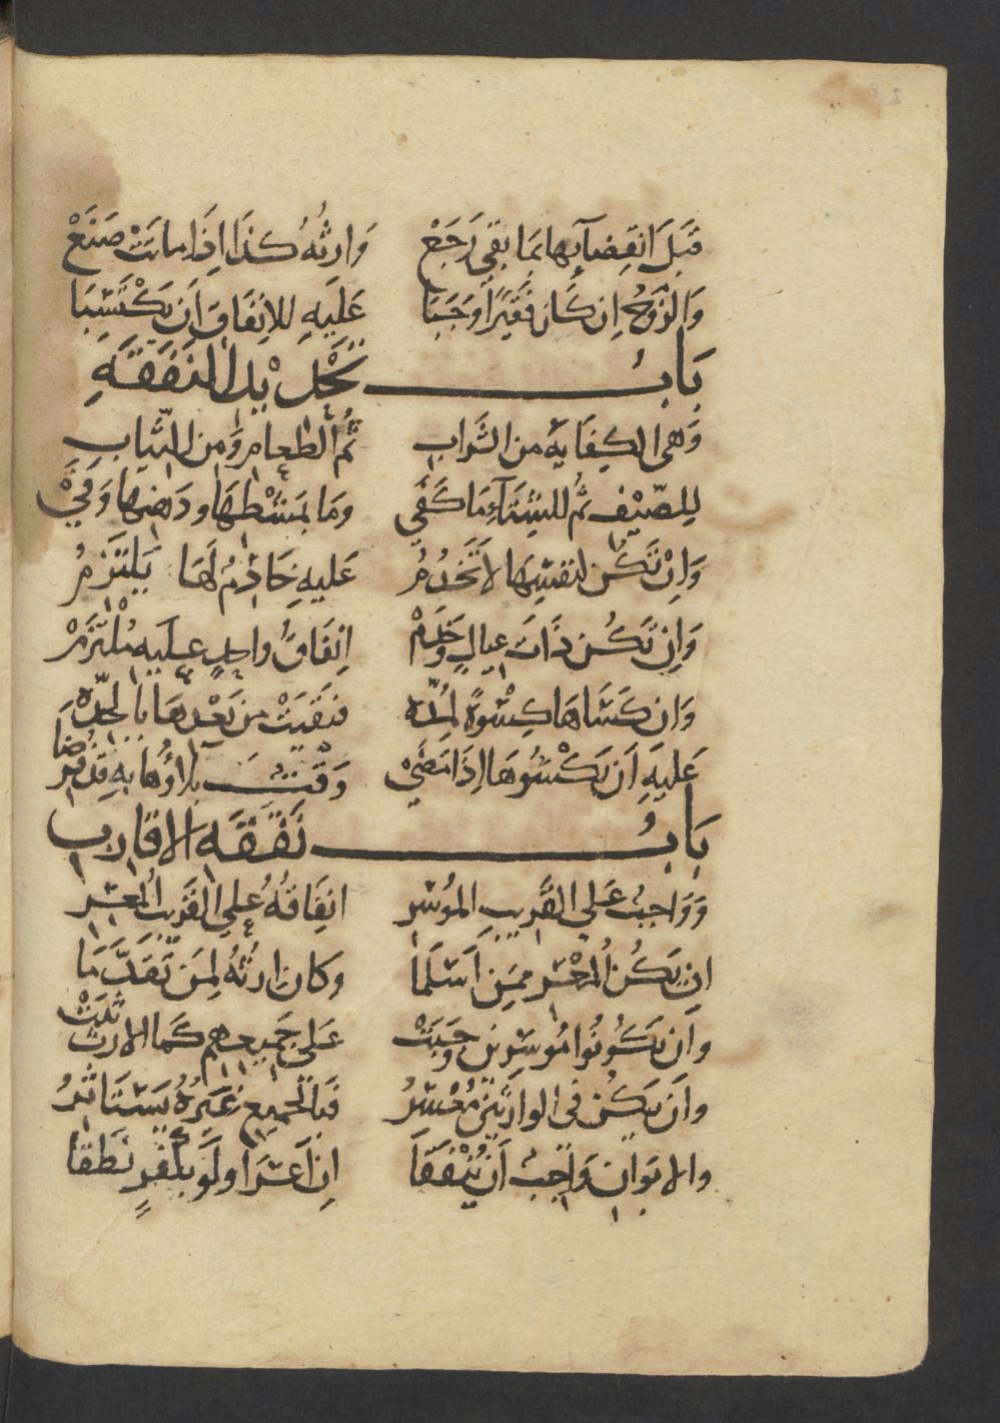 قَبلَ انقِضآئِها بِمَا بَقِي رَجَعْ وَارِثُهُ كَذَا اِذَا ماتَتْ صَنَعْ
وَالزَوجُ اِن كَانَ فَقِيرًا وَجَبَا عَلَيهِ للاِنفَاقِ اَن يَكْتَسِبَا
بَابُ تَحْدِيْدِ النَفَقَةِ
وَهى الكِفَايَةُ من الشَرابِ ثُمَّ الطعامِ وَمِن الثّيابِ
لِلصّيْفِ ثُمَّ للشِتَآءِ مَا كَفَى وَمَا بِمَشْطِهَا ودَهنِها وَفَيْ
وَاِنْ تَكُن لنفسِهَا لاَ تَخدُمُ عَليهِ خَادِمٌ لَهَا يَلتَزِمُ
وَاِن تَكُن ذَاتَ عِيالٍ وَخَدَمْ اِنِفَاقُ واحِدٍ عليهِ مُلْتَزَمْ
وَان كَسَاهَا كِسْوةً لمُدّه فَبَقِيَتْ مِن بَعْدِهَا بِالجدّهْ
عَليهِ اَن يَكْسُوهَا اِذَا مَضَيْ وَقتُ بِلاؤُها بهِ قد فُرِضَا
بَابُ نَفَقَة الاقارب
وَوَاجِبٌ عَلى القَرِيبِ المُوسِرِ انِفَاقُهُ عَلى القَرِيبِ المُعسِرِ
اِن يَكُن المُعْسِر مِمَن اَسلَمَا وكان اِرثُهُ لِمَن تَقَدَّمَا
وان يَكُونُوا مُوسَرِين وجَبَتْ عَلى جَمِيعهِم كَمَا الاِرث ثَبَتْ
واَن يَكُن فى الوارثِينَ مُعْسِرُ فَبالجميعِ غَيرُهُ يَستَاثرُ
والابَوانِ وَاجِبٌ اَن يُنْفَقَا اِن اَعسَرَا ولَو بكُفرٍ نَطَقَا